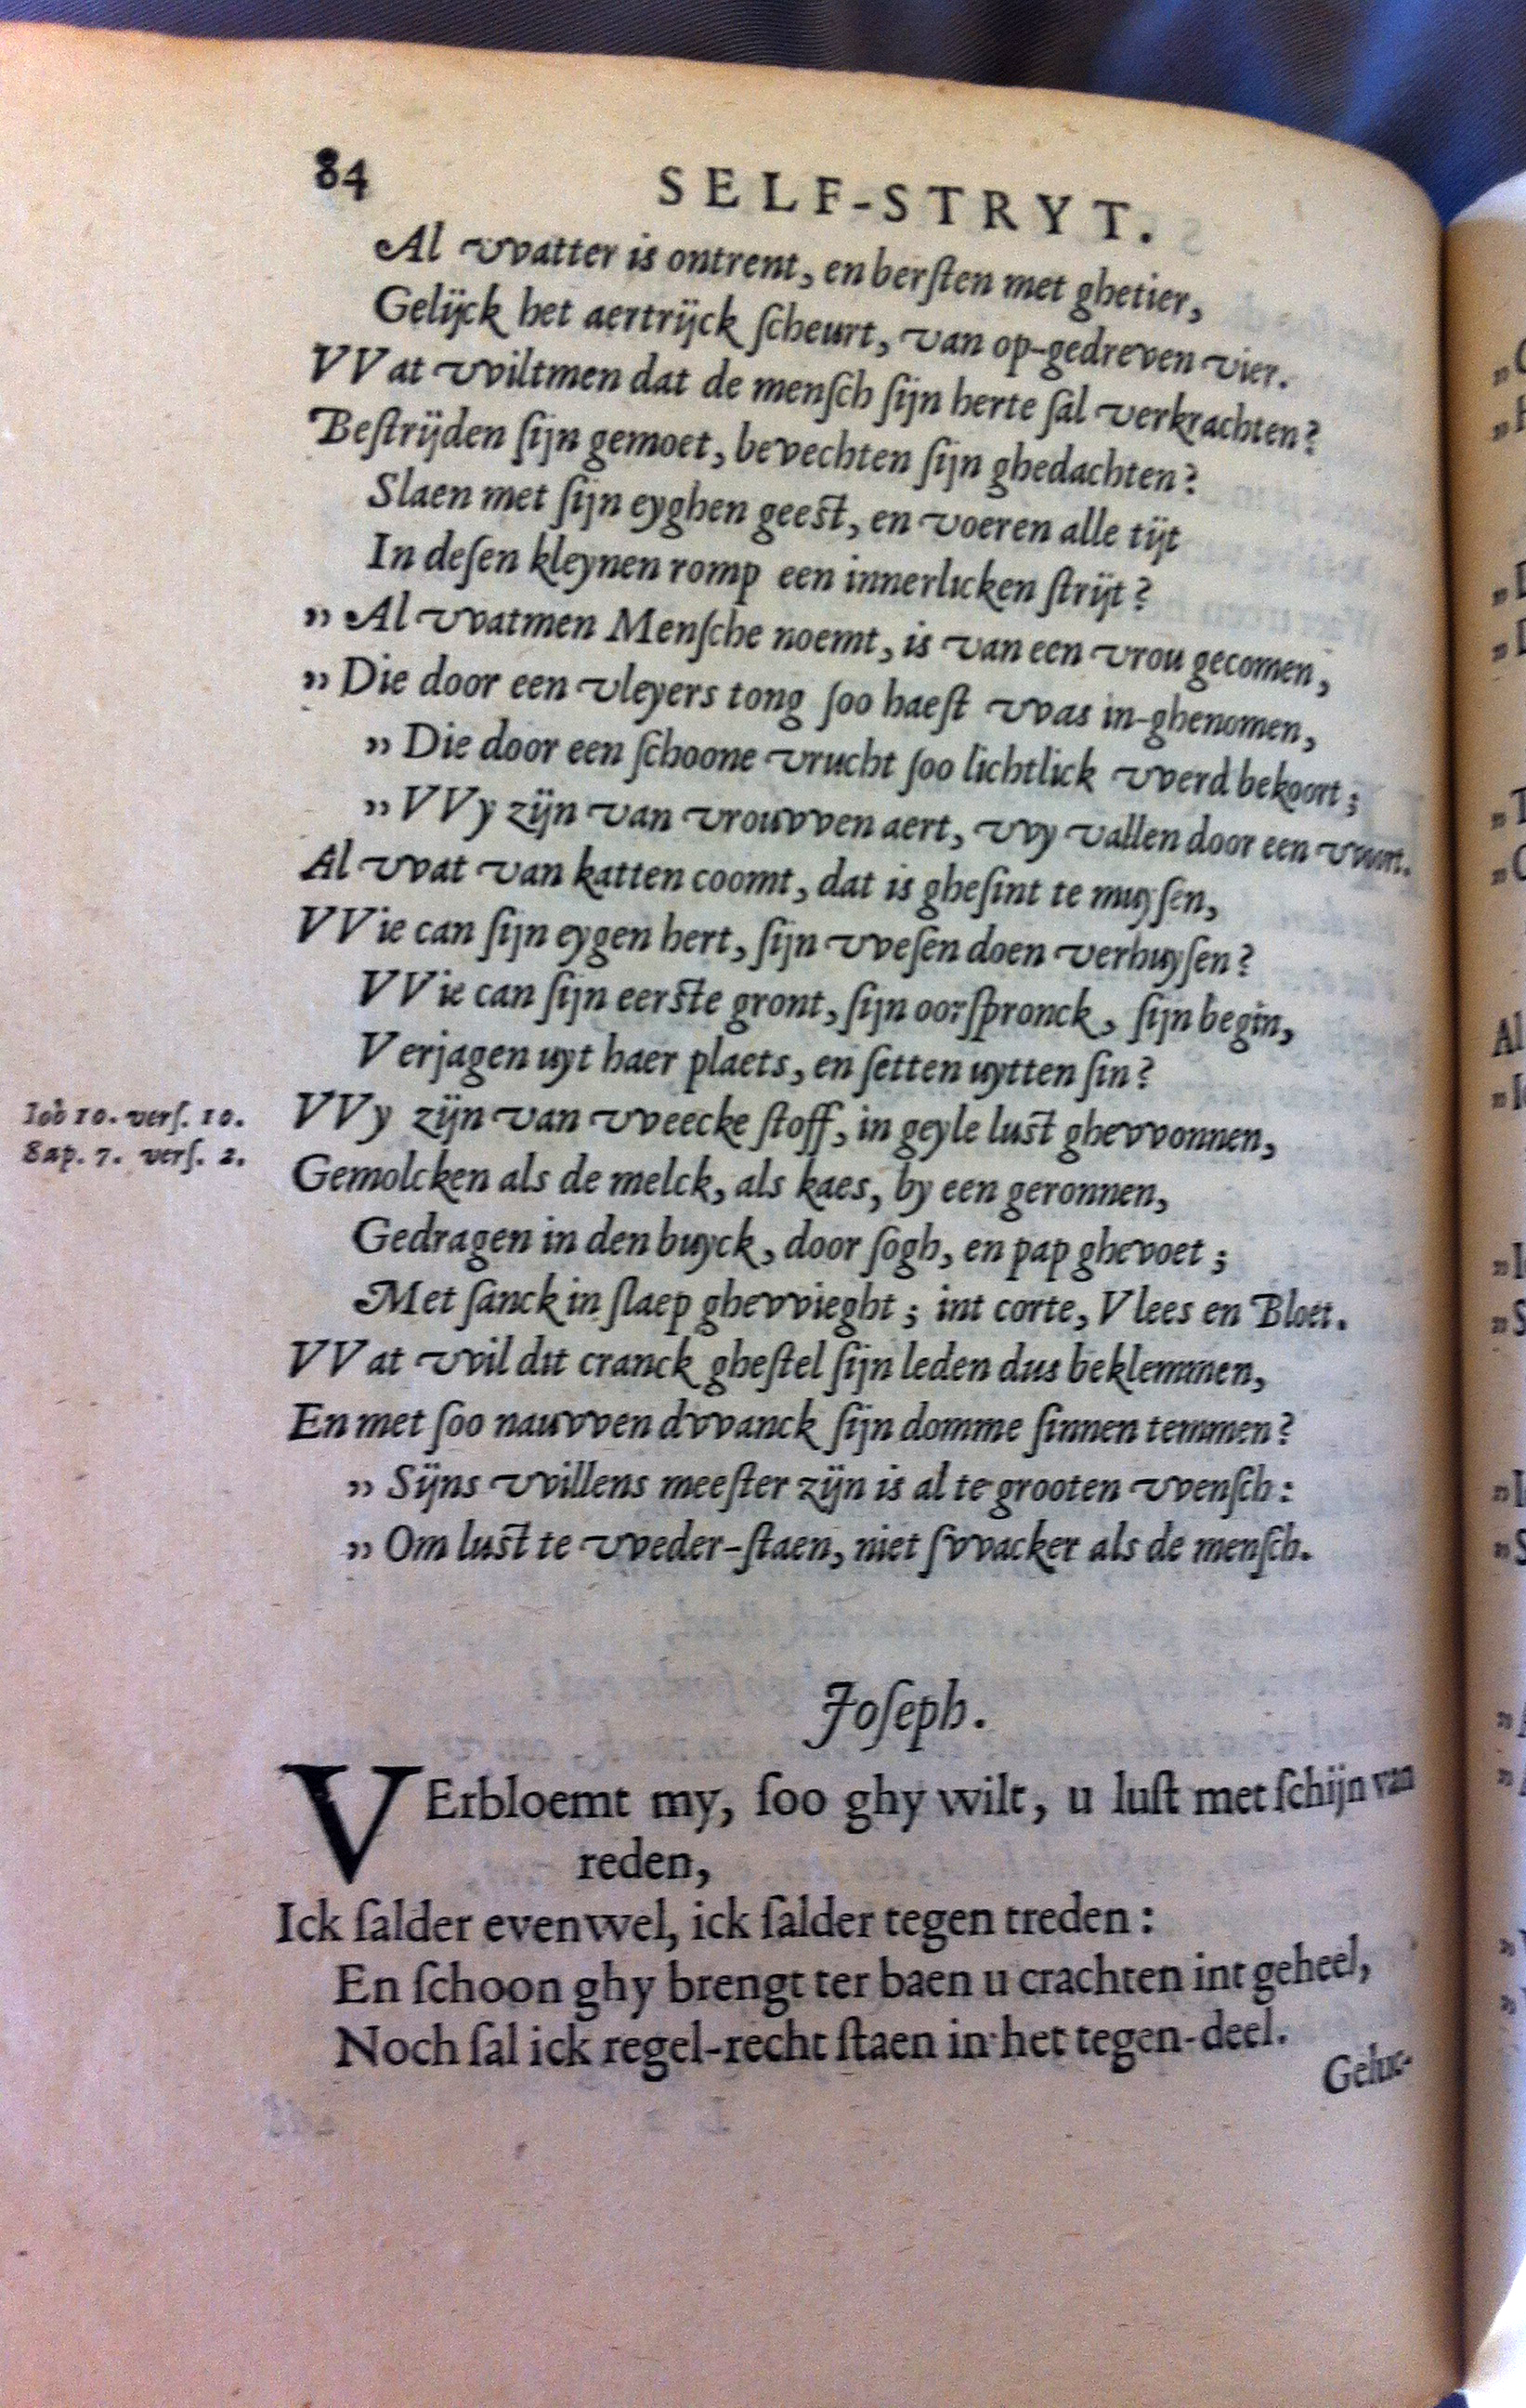 84
SELF-STRYT.
Al vvatter is ontrent, en berſten met ghetier,
Gelijck het aertrijck ſcheurt, van op-gedreven vier.
VVat vviltmen dat de menſch ſijn herte ſal verkrachten?
Beſtrijden ſijn gemoet, bevechten ſijn ghedachten?
Slaen met ſijn eyghen geeſt, en voeren alle tijt
In deſen kleynen romp een innerlicken ſtrijt?
„ Al vvatmen Menſche noemt, is van een vrou gecomen,
„ Die door een vleyers tong ſoo haeſt vvas in-ghenomen,
„ Die door een ſchoone vrucht ſoo lichtlick vverd bekoort;
„ VVy zijn van vrouvven aert, vvy vallen door een vvort.
Al vvat van katten coomt, dat is gheſint te muyſen,
VVie can ſijn eygen hert, ſijn vveſen doen verhuyſen?
VVie can ſijn eerſte gront, ſijn oorſpronck, ſijn begin,
Verjagen uyt haer plaets, en ſetten uytten ſin?
Iob 10. verſ. 10.
Sap. 7. verſ. 2.
VVy zijn van vveecke ſtoff, in geyle luſt ghevvonnen,
Gemolcken als de melck, als kaes, by een geronnen,
Gedragen in den buyck, door ſogh, en pap ghevoet;
Met ſanck in ſlaep ghevvieght; int corte, Vlees en Bloet.
VVat vvil dit cranck gheſtel ſijn leden dus beklemmen,
En met ſoo nauvven dvvanck ſijn domme ſinnen temmen?
„ Sijns vvillens meeſter zijn is al te grooten vvenſch:
„ Om luſt te vveder-ſtaen, niet ſvvacker als de menſch.
Joſeph.
VErbloemt my, ſoo ghy wilt, u luſt met ſchijn van
reden,
Ick ſalder evenwel, ick ſalder tegen treden:
En ſchoon ghy brengt ter baen u crachten int geheel,
Noch ſal ick regel-recht ſtaen in het tegen-deel.
Geluc-